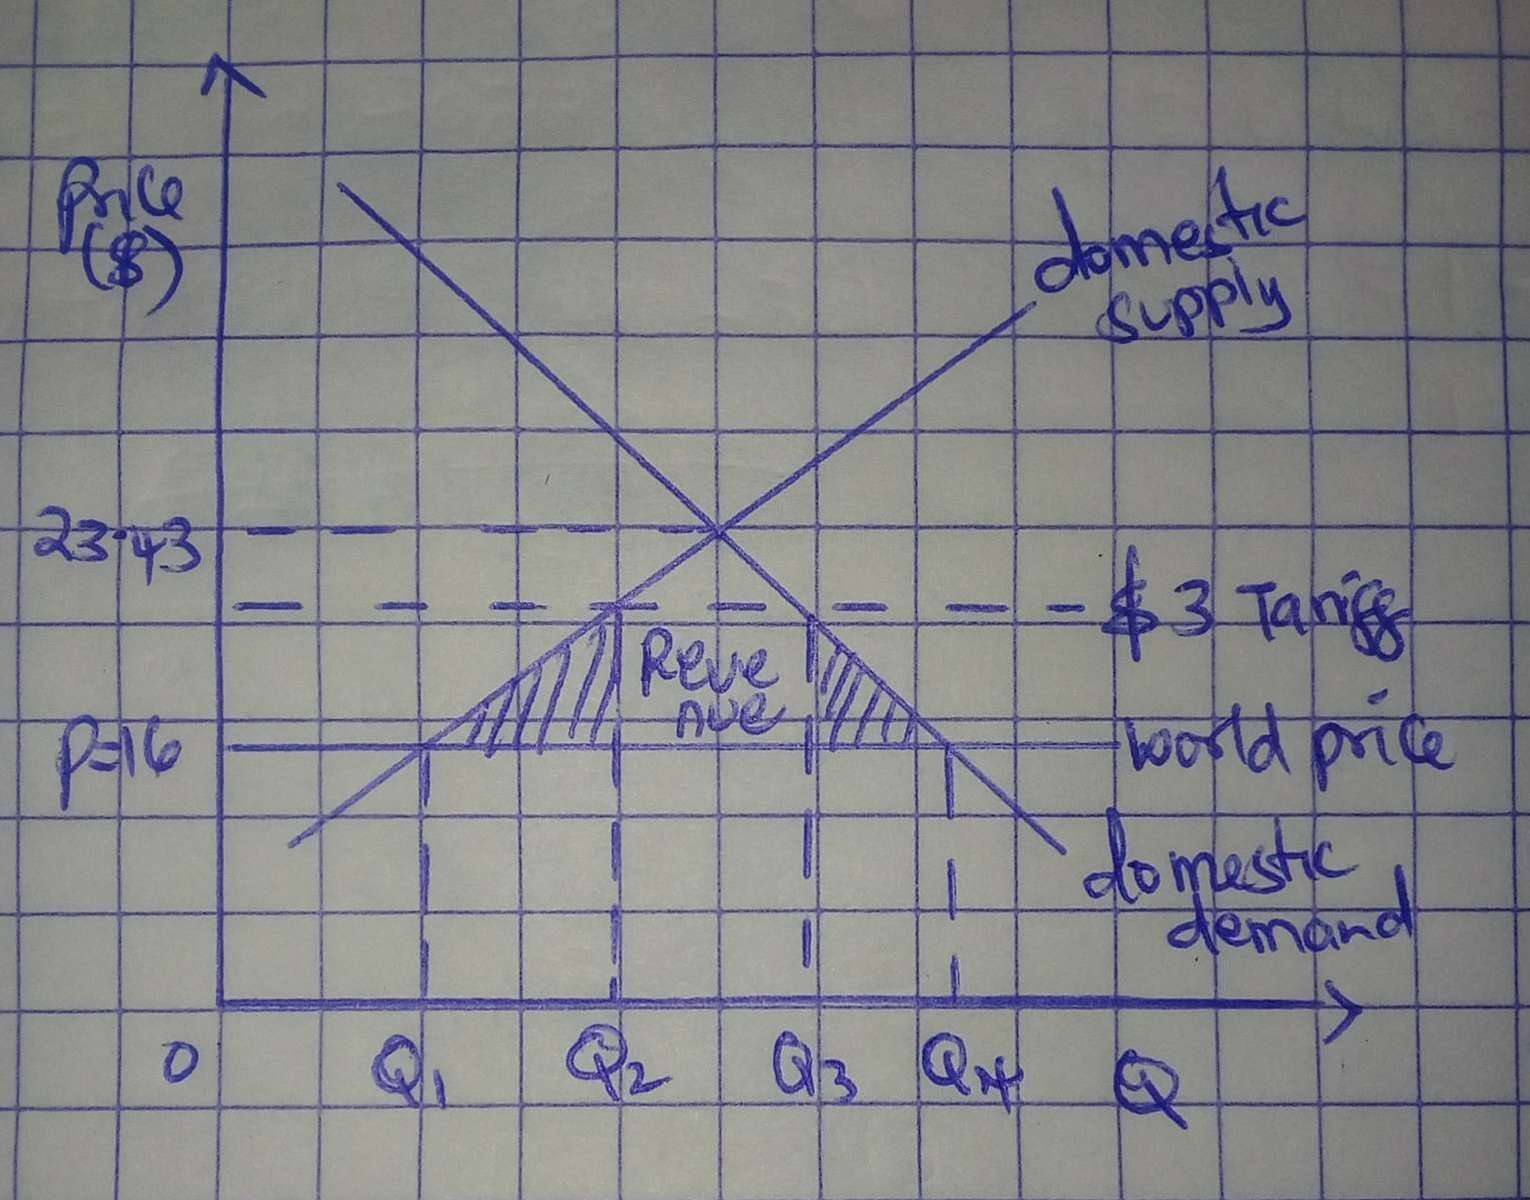 Price
($)
domestic
supply
23.43
$3 Tariff
Reve
nue
P=16
world price
domestic
demand
0
Q1
Q2
Q3
Q4
Q